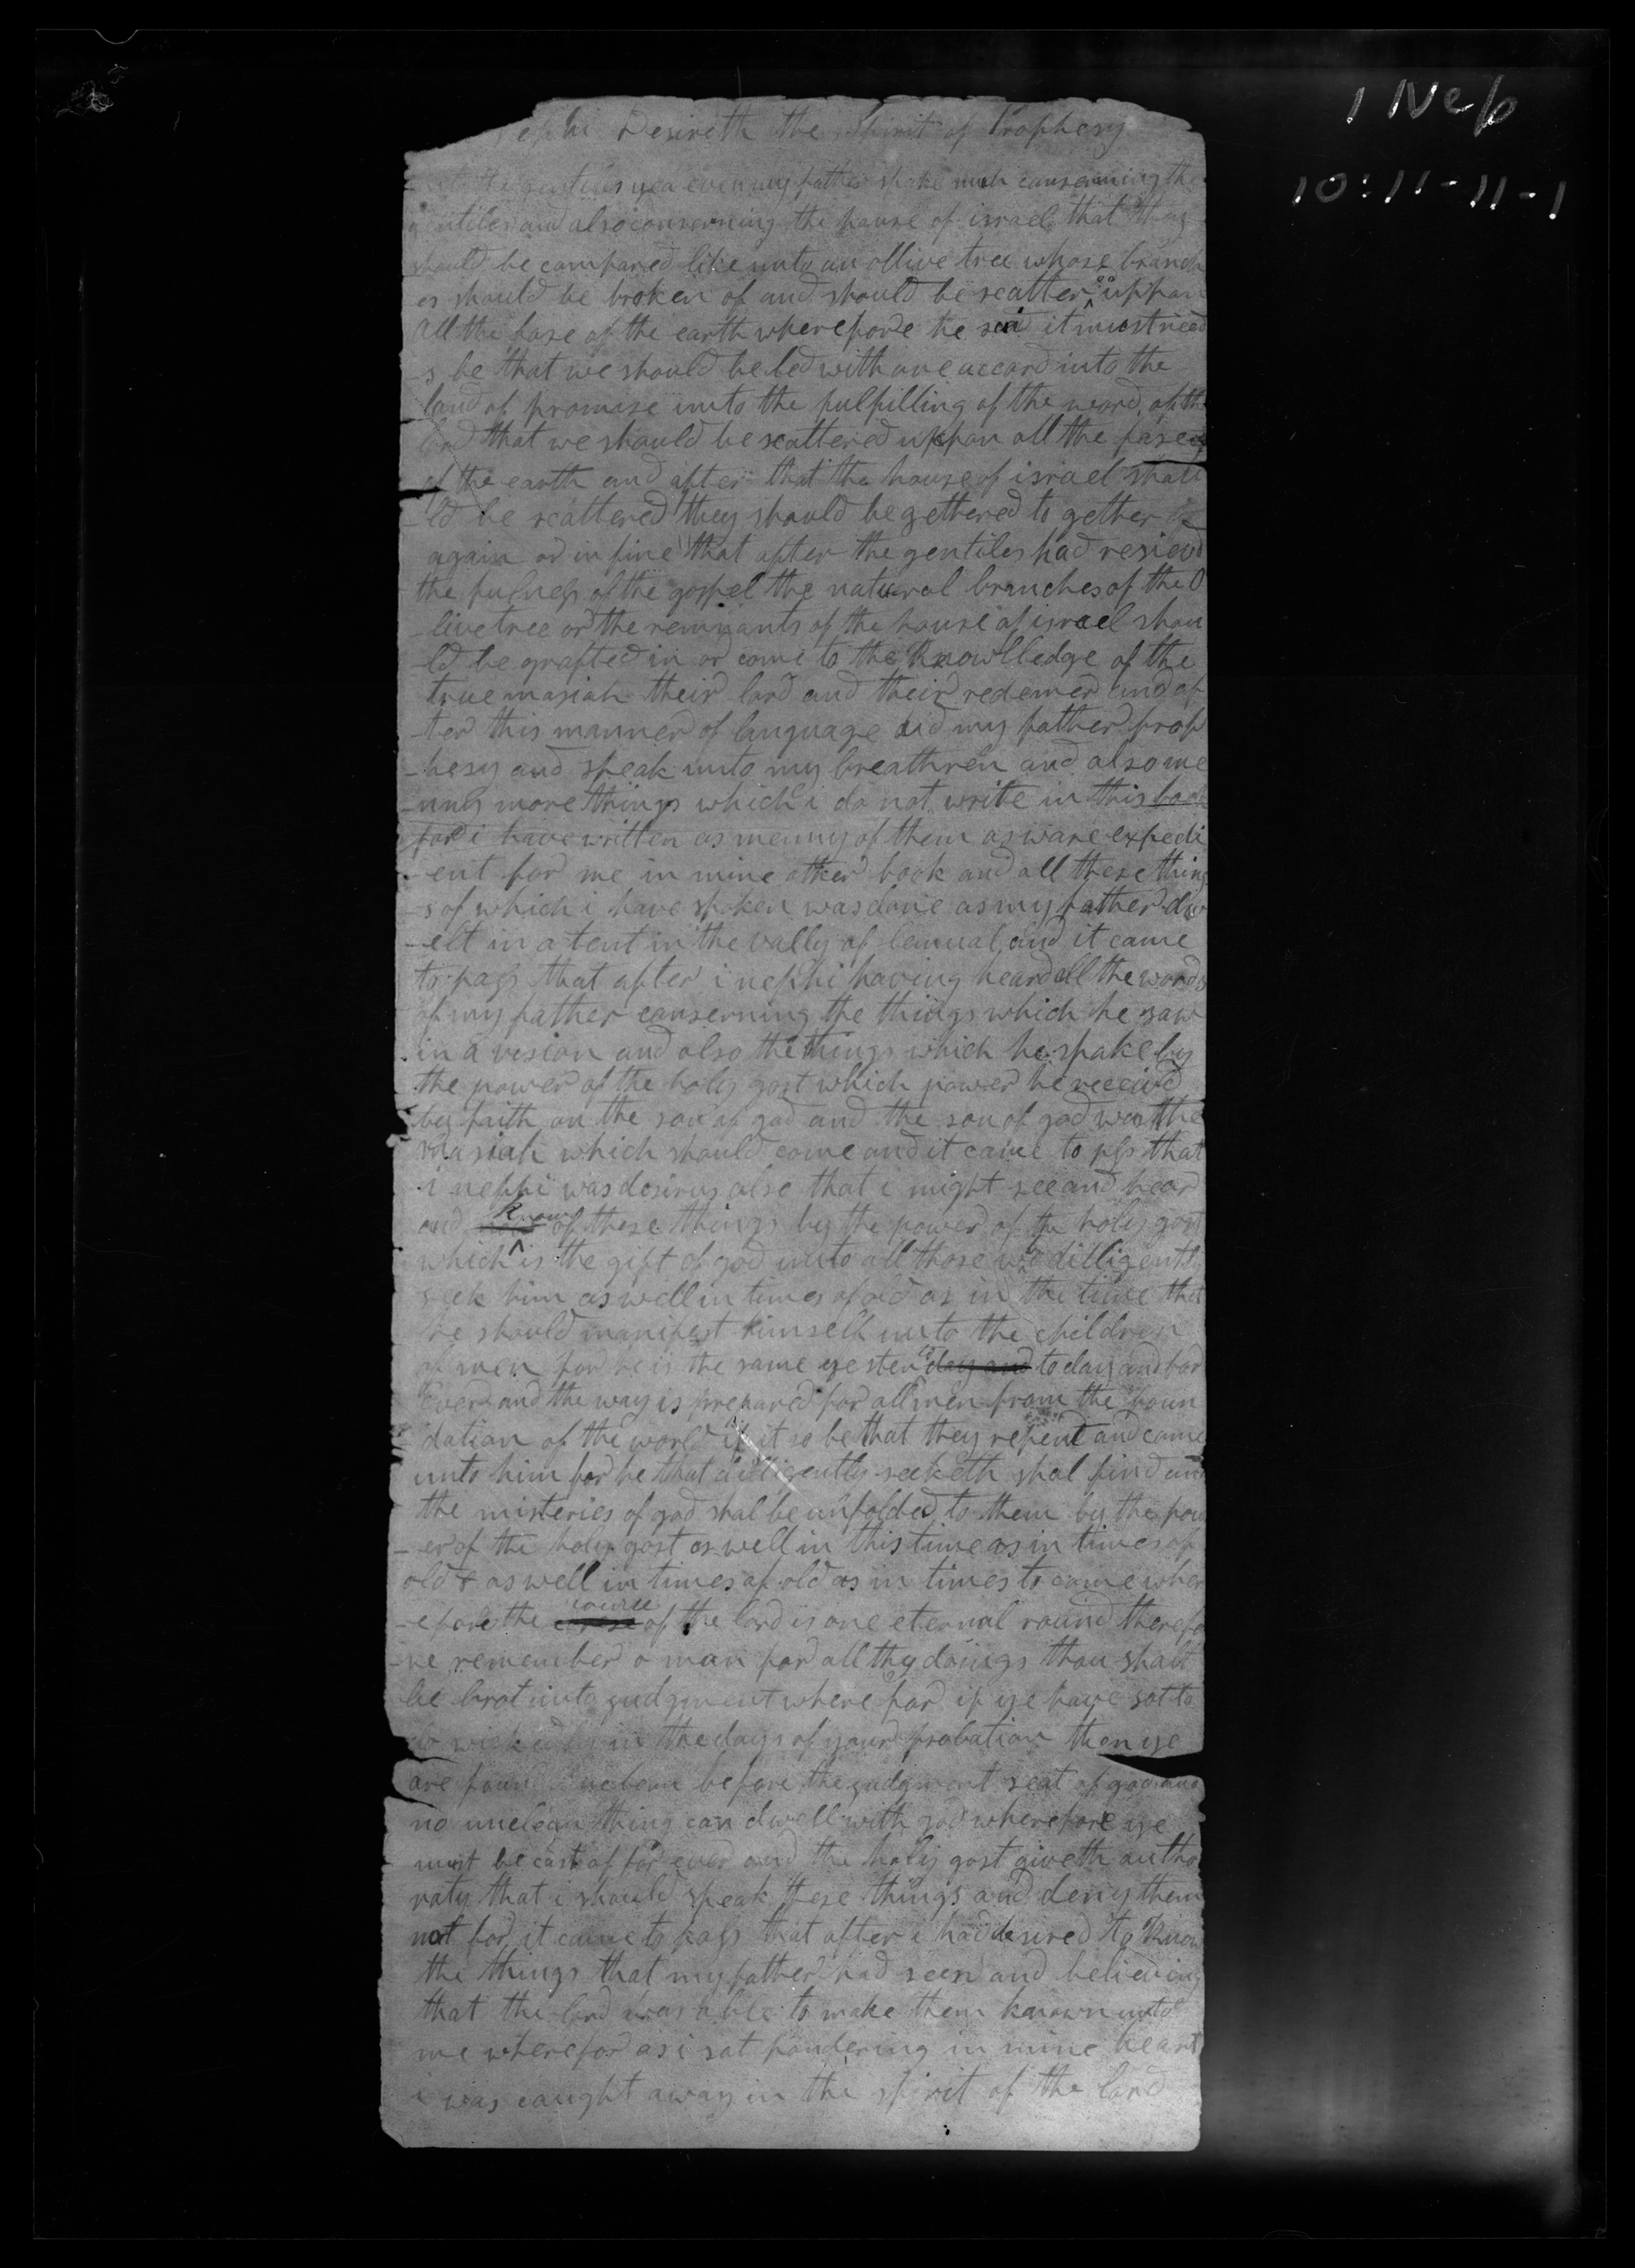 1 Nep
10:11-11-1
ephi Desireth the Spirit of Prophesy
the gentiles yea even my father spake much conserning the
gentiles and also conserning the house of israel that they
should be compared like unto an ollive tree whose branch
es should be broken of and should be scatterd uppon
all the fase of the earth wherefore he said it must need
-s be that we should be led with one accord into the
land of promise unto the fulfilling of the word of the
lord that we should be scattered uppon all the fase
of the earth and after that the house of israel shou
-ld be scattered they should be gethered to gether
again or in fine that after the gentiles had resievd
the fulness of the gospel the natural branches of the O
-live tree or the remnants of the house of israel shou
-ld be grafted in or come to the knowlledge of the
true masiah their lord and their redemer and af
-ter this manner of language did my father prop
-hesy and speak unto my breathren and also me
-nny more things which i do not write in this book
for i have written as menny of them as ware expedi
-ent for me in mine other book and all these thing
-s of which i have spoken was done as my father dw
-elt in a tent in the vally of lemual and it came
to pass that after i nephi having heard all the words
of my father conserning the things which he saw
in a vesion and also the things which he spake by
the power of the holy gost which power he receivd
by faith on the son of god and the son of god was the
masiah which should come and it came to pss that
i nephi was desirus also that i might see and hear
and know of these things by the power of the holy gost
which is the gift of god unto all those who dilligently
seek him as well in times of old as in the time that
he should manifest himself unto the children
of men for he is the same yester day and to day and for
ever and the way is prepared for all men from the foun
dation of the world if it so be that they repent and come
unto him for he that dilligently seeketh shal find and
the misteries of god shal be unfolded to them by the pow
-er of the holy gost as well in this time as in times of
old & as well in times of old as in times to come wher
-efore the course of the lord is one eternal round therefo
-re remember o man for all thy doings thou shalt
be brot into judgment where for if ye have sot to
do wickedly in the days of your probation then ye
are found unclean before the judgment seat of god and
no unclean thing can dwell with god wherefore ye
must be cast of for ever and the holy gost giveth autho
raty that i should speak these things and deny them
not for it came to pass that after i had desired to know
the things that my father had seen and believing
that the lord was able to make them known unto
me wherefor as i sat pondering in mine heart
i was caught away in the spirit of the lord